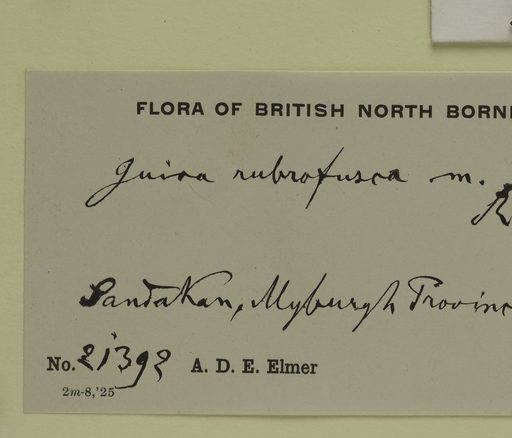 FLORA OF BRITISH NORTH BORN
Guioa rubrofusca m.
R
Sandakan, Myburgh Provinc
No. 21392 A. D. E. Elmer
2m-8,'25